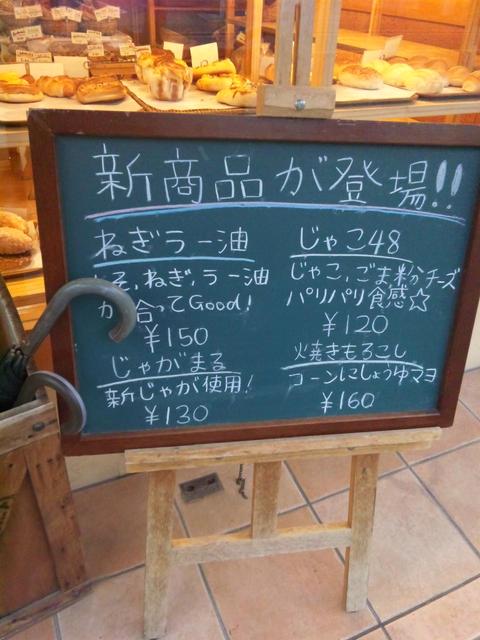 新商品が登場!!
ねぎラー油
しそ,ねぎ,ラー油
が 合ってGood!
¥150
じゃがまる
新じゃが使用!
¥130
じゃこ48
じゃこ,ごま,粉チーズ
パリパリ食感☆
¥120
火焼きもろこし
コーンにしょうゆマヨ
¥160